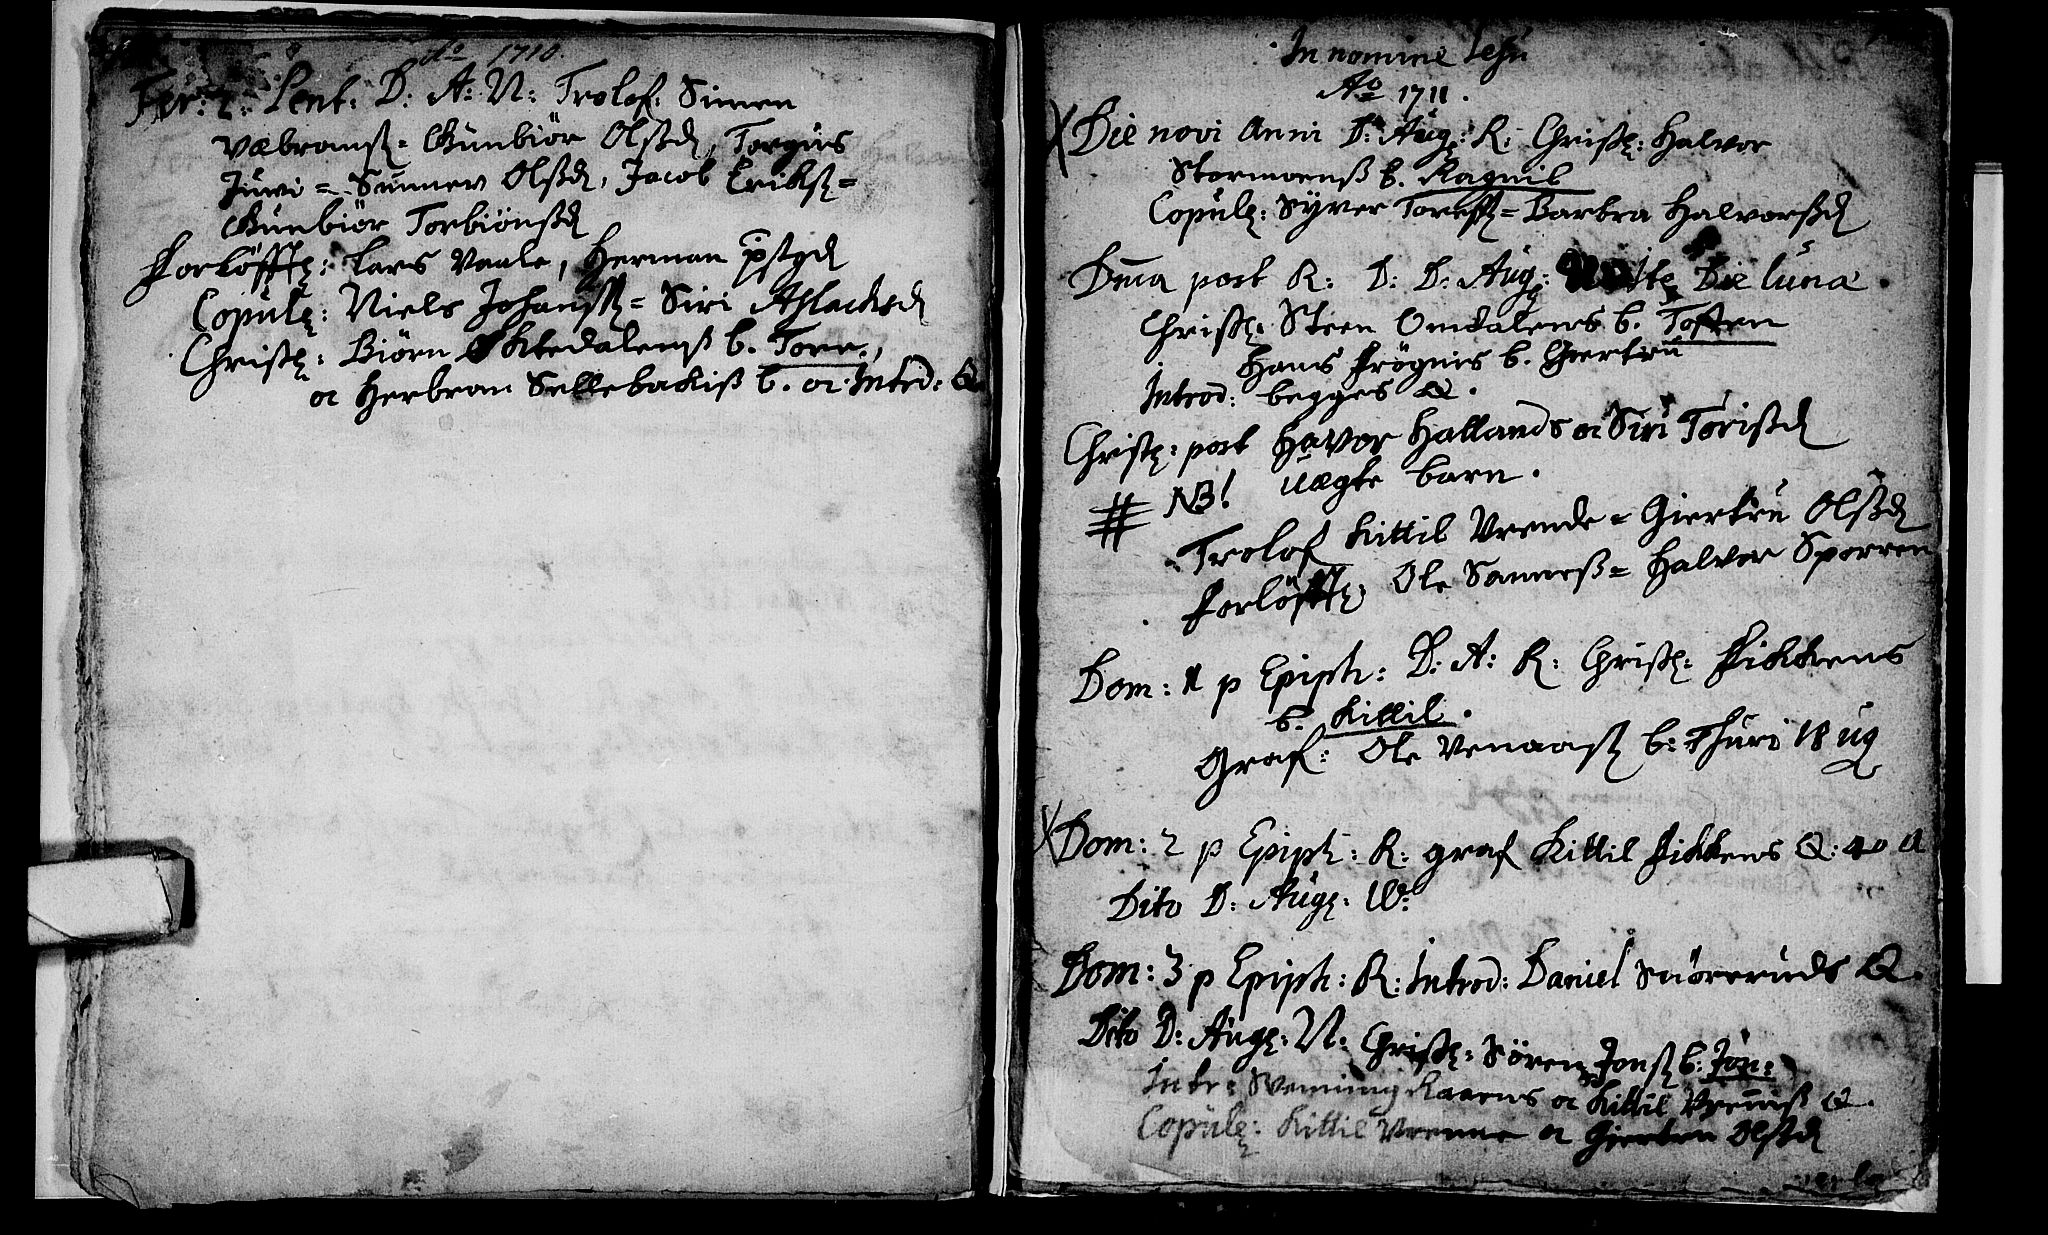 Ao 1710.
Fer: 2. Pent: D: A: N: Trolof: Simen
Væbransß = Gunbiör Olsßd, Torgüs
Jüvi = Sünnev Olsßd, Jacob Eriksß =
Gunbiör Torbiönsßd
Forlöfft: Lars Vaale, Herman
Copül: Niels Johansß = Siri Aslachsd
Christ: Biörn Ektedalens b. Tore,
oc Herbran Sellebakis b. oc Introd: Q.
In nomine Jesu
Ao 1711.
Die novi Anni D: Aug: R: Christ: Halvor
Stormoens b. Ragnil
Copül: Syver Toresß = Barbra Halvorsßd
Dma post R: D: D: Aug: Die lunæ.
Christ: Steen Omdalens b. Tosten
Hans Frögnes b. Giertru
Introd: begges Q.
Christ: post Havor Hallands oc Siri Torisßd
# NB! uægte barn.
Trolof Kittil Vrende = Giertrü Olsßd
Forlöfft: Ole Sannesß = Halvor Sporren
Dom: 1 p Epiph: D: A: R: Christ: Fikkens
b. Kittil.
Graf: Ole Venaasß b: Thuri 18 ug
Dom: 2 p Epiph: R: graf Kittil Fikkens Q: 40 a
Dito D: Aug: W:
Dom: 3 p Epiph: R: Introd: Daniel Snörruds Q.
Dito D: Aug: N: Christ: Sören Jonsß b: Jon:
Intr: Svenning Kaarns oc Kittil Vrennes Q.
Copül: Kittil Vrenne oc Giertru Olsßd